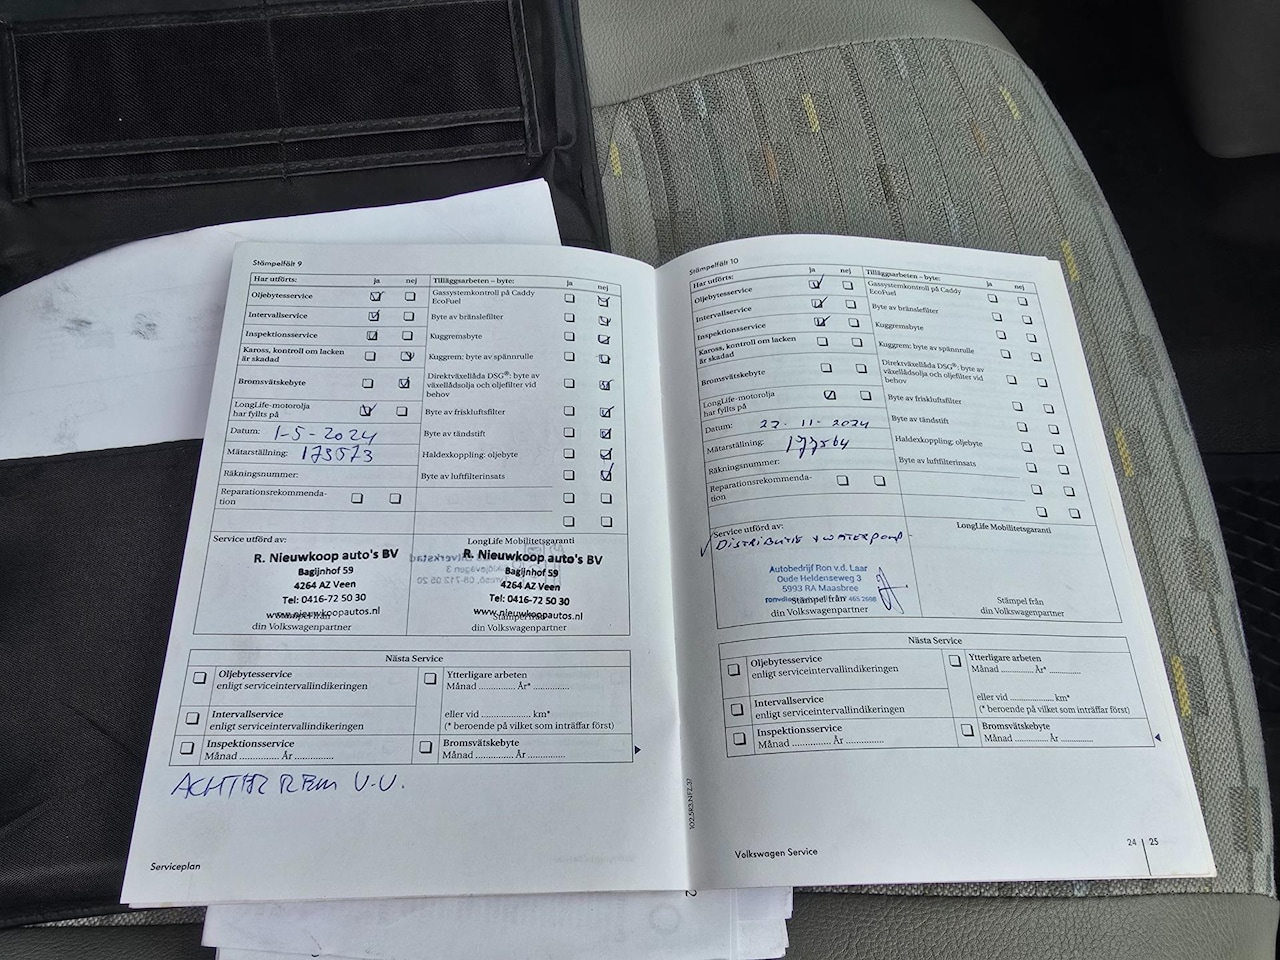 Stämpelfält 9
Har utförts: ja nej
Oljebytesservice
Intervallservice
Inspektionsservice
Kaross, kontroll om lacken
är skadad
Bromsvätskebyte
LongLife-motorolja
har fyllts på
Datum: 1-5-2024
Mätarställning: 173573
Räkningsnummer:
Reparationsrekommenda-
tion
Tilläggsarbeten – byte: ja nej
Gassystemkontroll på Caddy
EcoFuel
Byte av bränslefilter
Kuggremsbyte
Kuggrem: byte av spännrulle
Direktväxellåda DSG®: byte av
växellådsolja och oljefilter vid
behov
Byte av friskluftsfilter
Byte av tändstift
Haldexkoppling: oljebyte
Byte av luftfilterinsats
Service utförd av:
R. Nieuwkoop auto's BV
Bagijnhof 59
4264 AZ Veen
Tel: 0416-72 50 30
www.nieuwkoopautos.nl
Stämpel från
din Volkswagenpartner
LongLife Mobilitetsgaranti
R. Nieuwkoop auto's BV
Bagijnhof 59
4264 AZ Veen
Tel: 0416-72 50 30
www.nieuwkoopautos.nl
Stämpel från
din Volkswagenpartner
Nästa Service
Oljebytesservice
enligt serviceintervallindikeringen
Intervallservice
enligt serviceintervallindikeringen
Inspektionsservice
Månad .............. År ..............
Ytterligare arbeten
Månad .............. År* ..............
eller vid .................... km*
(* beroende på vilket som inträffar först)
Bromsvätskebyte
Månad .............. År ..............
ACHTER REM V.V.
Serviceplan
102.5R3.NFZ.37
Stämpelfält 10
Har utförts: ja nej
Oljebytesservice
Intervallservice
Inspektionsservice
Kaross, kontroll om lacken
är skadad
Bromsvätskebyte
LongLife-motorolja
har fyllts på
Datum: 22-11-2024
Mätarställning: 177564
Räkningsnummer:
Reparationsrekommenda-
tion
Tilläggsarbeten – byte: ja nej
Gassystemkontroll på Caddy
EcoFuel
Byte av bränslefilter
Kuggremsbyte
Kuggrem: byte av spännrulle
Direktväxellåda DSG®: byte av
växellådsolja och oljefilter vid
behov
Byte av friskluftsfilter
Byte av tändstift
Haldexkoppling: oljebyte
Byte av luftfilterinsats
Service utförd av:
DISTRIBUTIE + WATERPOMP
Autobedrijf Ron v.d. Laar
Oude Heldenseweg 3
5993 RA Maasbree
Stämpel från
din Volkswagenpartner
LongLife Mobilitetsgaranti
Stämpel från
din Volkswagenpartner
Nästa Service
Oljebytesservice
enligt serviceintervallindikeringen
Intervallservice
enligt serviceintervallindikeringen
Inspektionsservice
Månad .............. År ..............
Ytterligare arbeten
Månad .............. År* ..............
eller vid .................... km*
(* beroende på vilket som inträffar först)
Bromsvätskebyte
Månad .............. År ..............
Volkswagen Service
24 25